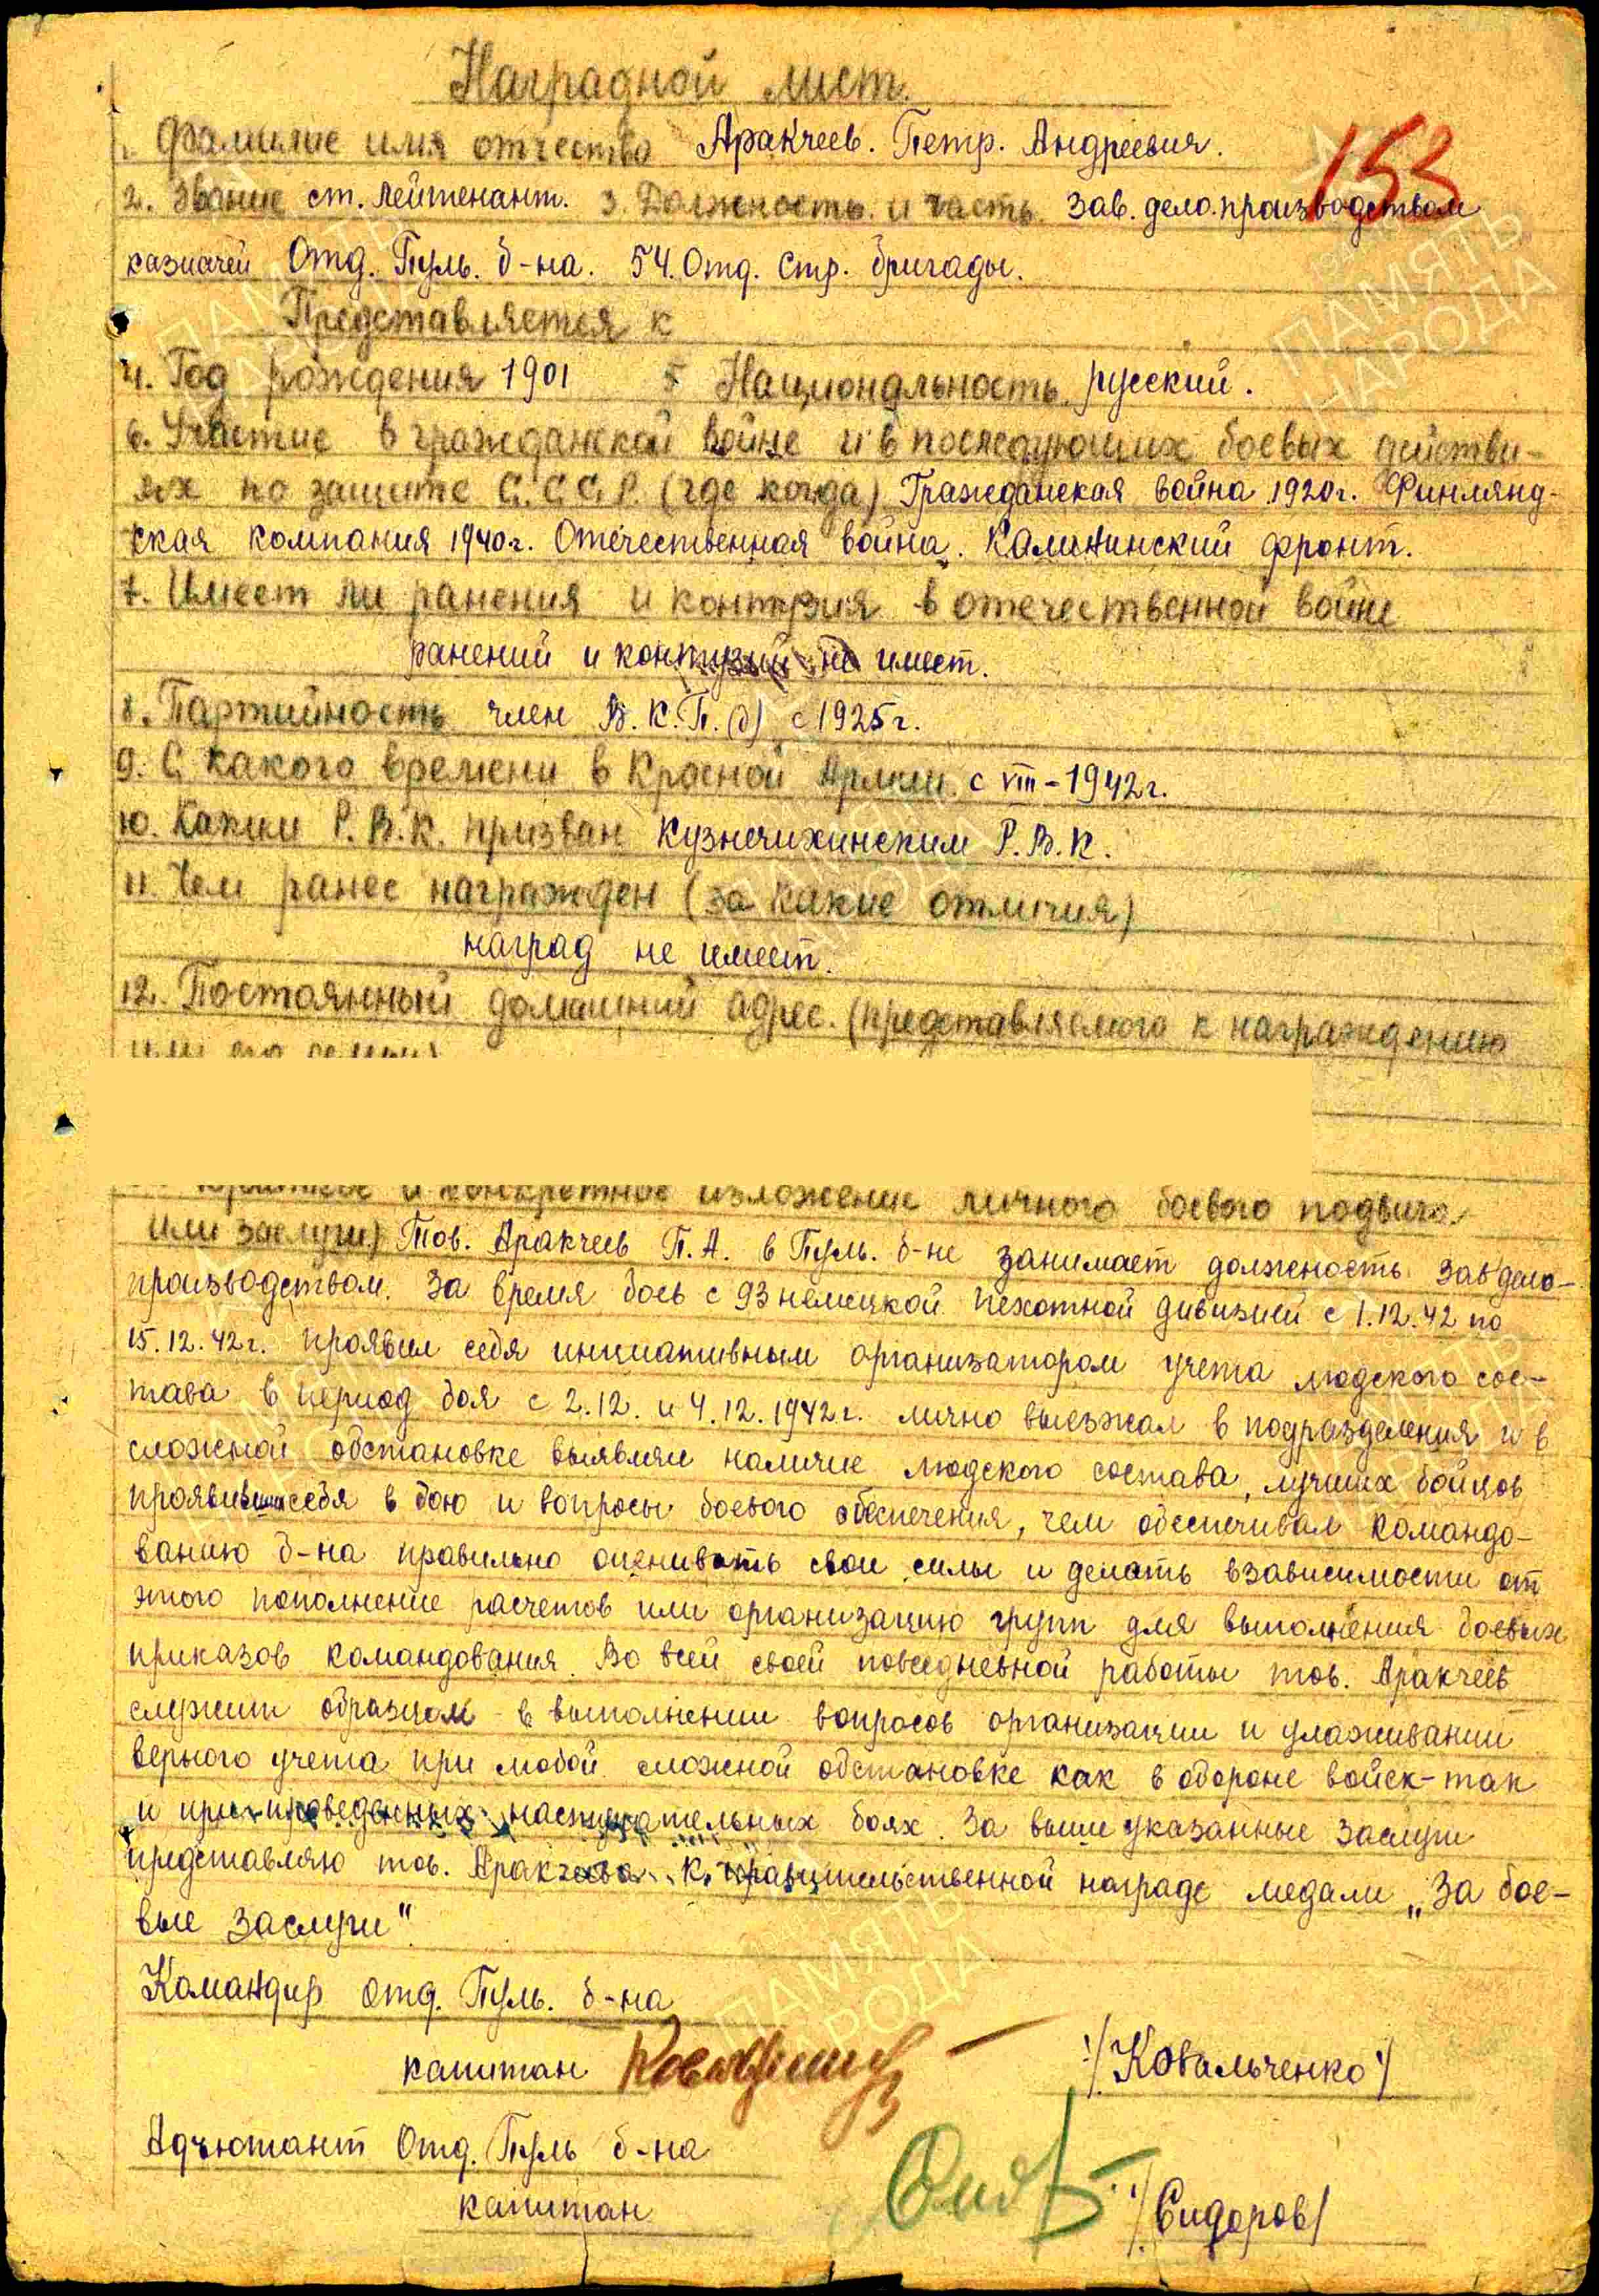 Наградной лист.
153
1. Фамилие имя отчество Аракчеев. Петр. Андреевич.
2. Звание ст. лейтенант. 3. Должность и часть зав. дело.производством
казначей Отд. Пуль. б-на. 54. Отд. Стр. бригады.
Представляется к
4. Год рождения 1901 5 Национальность русский.
6. Участие в гражданской войне и в последующих боевых действи-
ях по защите С.С.С.Р. (где когда) Гражданская война 1920г. Финлянд-
ская компания 1940г. Отечественная война. Калининский фронт.
7. Имеет ли ранения и контузия в отечественной войне
ранений и контузий не имеет.
8. Партийность член В.К.П.(б) с 1925г.
9. С какого времени в Красной Армии с VIII-1942г.
10. Каким Р.В.К. призван Кузнечихинским Р.В.К.
11. Чем ранее награжден (за какие отличия)
наград не имеет.
12. Постоянный домашний адрес. (представляемого к награждению
или его семьи)
и конкретное изложение личного боевого подвига
или заслуги) Тов. Аракчеев П.А. в Пуль. б-не занимает должность завдело-
производством. За время боев с 93 немецкой пехотной дивизией с 1.12.42 по
15.12.42г. проявил себя инициативным организатором учета людского сос-
тава в период боя с 2.12. и 4.12.1942г. лично выезжал в подразделения и в
сложной обстановке выявлял наличие людского состава, лучших бойцов
проявивших себя в бою и вопросы боевого обеспечения, чем обеспечивал командо-
ванию б-на правильно оценивать свои силы и делать взависимости от
этого пополнение расчетов или организацию групп для выполнения боевых
приказов командования. Во всей своей повседневной работы тов. Аракчеев
служит образцом в выполнении вопросов организации и улаживании
верного учета при любой сложной обстановке как в обороне войск-так
и при проведенных наступательных боях. За выше указанные заслуги
представляю тов. Аракчеева к правительственной награде медали „За бое-
вые заслуги“.
Командир отд. Пуль. б-на
капитан /Ковальченко/
Адъютант Отд. Пуль б-на
капитан /Сидоров/
ПАМЯТЬ
НАРОДА